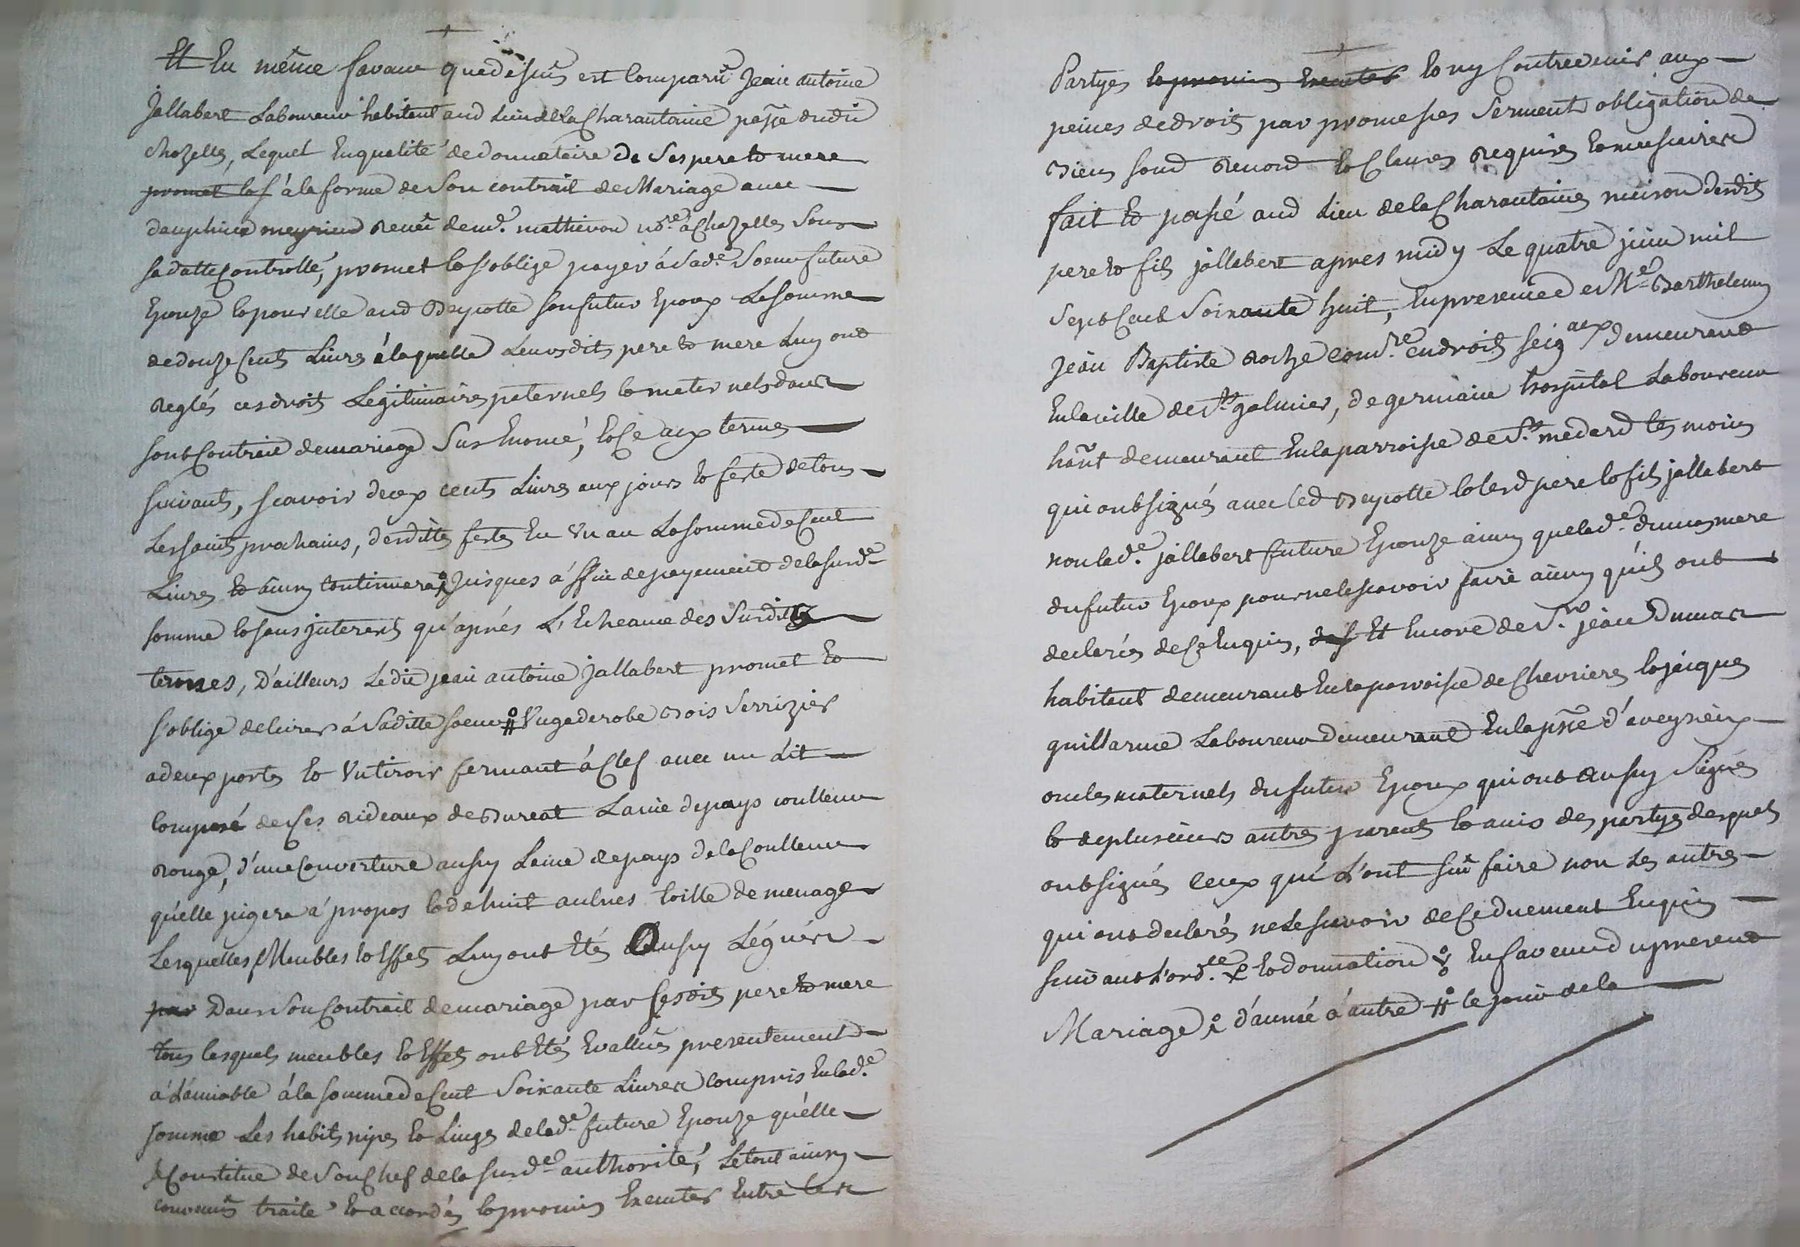 Et En même faveur que dessus est Comparu Jean antoine
jallabert Laboureur habitant aud Lieu de La Charantaine pssse dudit
chazelles, Lequel En qualité de donnataire de Ses pere et mere
promet et s' à la forme de Son contrait de Mariage avec
dauphine meyrieu Receu de md. mathevon nore à Chazelles Sous
Sa datte Controllé, promet et s'oblige payer à Sade. Soeur future
Epouze et pour elle aud Beyotte son futur Epoux La somme
de douze Cents Livres à laquelle Leursdits pere et mere Luy ont
Reglés ces droits Legitimaires paternels et maternels dans
sont Contrait de mariage Sus Enoncé, et Ce aux termes
suivants, scavoir deux cents Livres aux jours et feste de tous
Les saints prochains, desdittes festes En Un an La somme de Cent
Livres et ainsy Continuera Jusques à ffin de payement de la surde
somme et sans Interests qu'après L'Echeance des Surdits
termes, D'ailleurs Ledit jean antoine jallabert promet et
s'oblige delivrer à Saditte soeur # Un garderobe Bois Serizier
a deux portes et Un tiroir fermant à Clef avec un Lit
composé de Ces Rideaux de Bureat Laine de pays coulleur
Rouge, d'une Couverture aussy Laine de pays de la Coulleur
qu'elle jugera à propos et de huit aulnes toille de menage
Lesquelles Meubles et Effets Luy ont Etés aussy Légués
par Dans Son Contrait de mariage par Sesdits pere et mere
tous lesquels meubles et Effets ont Etés Evallués presentement
à L'amiable à la somme de Cent Soixante Livres compris En lade.
somme Les habits nipes et Linges de lade. future Epouze qu'elle
se Constitue de Son Chef de la surde authorité, Le tout ainsy
convenus traité et accordés et promis Executer Entre les
Partyes et promis Executer et ny Contrevenir aux
peines de droits par promesses Serment obligation de
Biens soud Renond et Clauses Requises et necessaires
fait et passé aud Lieu de la Charantaine maison desdits
pere et fils jallabert apres midy Le quatre juin mil
Sept Cent Soixante huit, En presence de Me Barthelemy
Jean Baptiste Roche comre. en droits seigaux Demeurant
En la ville de St. galmier, de germain hospital Laboureur
hant demeurant En la parroisse de St. medard tesmoins
qui ont signés avec led Beyotte et lesd pere et fils jallabert
non lade. jallabert future Epouze ainsy que lade. dumas mere
du futur Epoux pour ne le scavoir faire ainsy qu'ils ont
declarés de Ce Enquis, Et Encore de Sr. jean Dumas
habitant demeurant En la parroisse de Chevrieres et jacques
guillarme Laboureur Demeurant En la psse d'aveyzieux
oncles maternels du futur Epoux qui ont aussy Signés
et de plusieurs autres parents et amis des partyes desquels
ont signés Ceux qui L'ont sceu faire non Les autres
qui ont declarés ne Le scavoir de Ce duement Enquis
suivant L'ordce. et donnation En faveur du present
Mariage d'année à autre # le jour de la